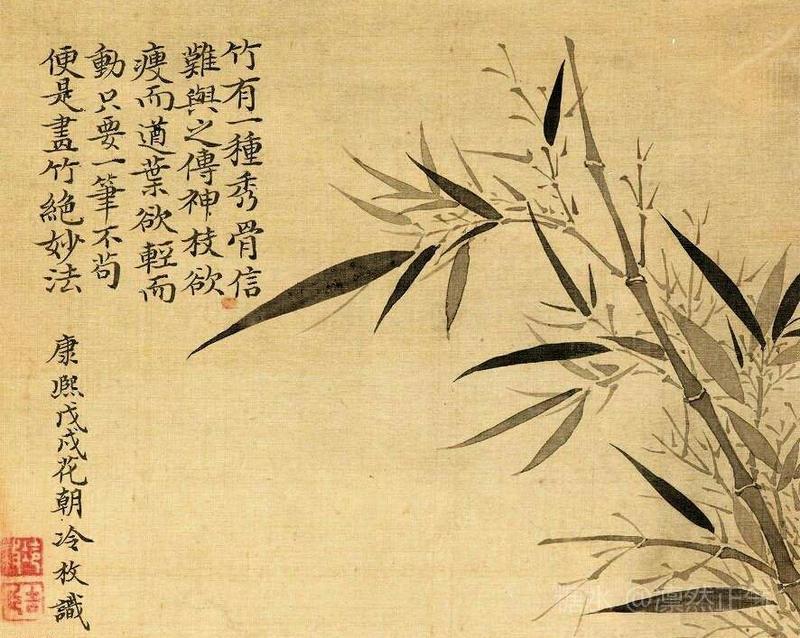 竹有一種秀骨信
難與之傳神枝欲
瘦而遒葉欲輕而
動只要一筆不苟
便是畫竹絕妙法
康熙戊戌花朝冷枚識